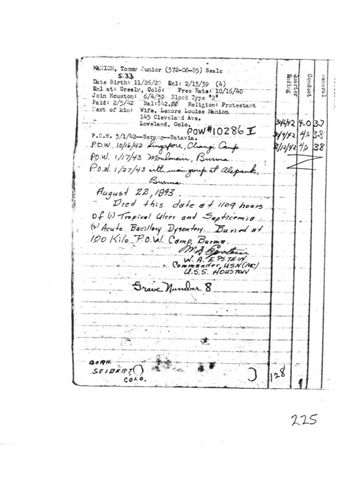 MANION, Tommy Junior (372-06-85) Sea1c
S.33
Date Birth: 11/26/20 Enl: 2/15/39 (4)
Enl at: Greely, Colo: Pres Rate: 10/16/40
Join Houston: 6/4/39 Blood Type "B"
Paid: 2/5/42 Bal: $42.00 Religion: Protestant
Next of kin: Wife, Lenore Louise Manion
145 Cleveland Ave.
Loveland, Colo.
POW #10286 I
P.O.W. 3/1/42—Serang—Batavia.
P.O.W. 10/16/42 Singapore, Changi Camp
P.O.W. 1/17/43 Moulmein, Burma
P.O.W. 1/27/43 with main group at
Burma
August 22, 1943
Died this date at 1109 hours
of (1) Tropical Ulcer and Septicemia
(2) Acute Bacillary Dysentery. Buried at
100 Kilo P.O.W. Camp, Burma.
W.A. EPSTEIN
Commander, USN (MC)
U.S.S. HOUSTON
Grave Number 8
BORN
SEIBERT
COLO.
128
225
Conduct
4.0 3.7
4.0 3.8
4.0 3.8